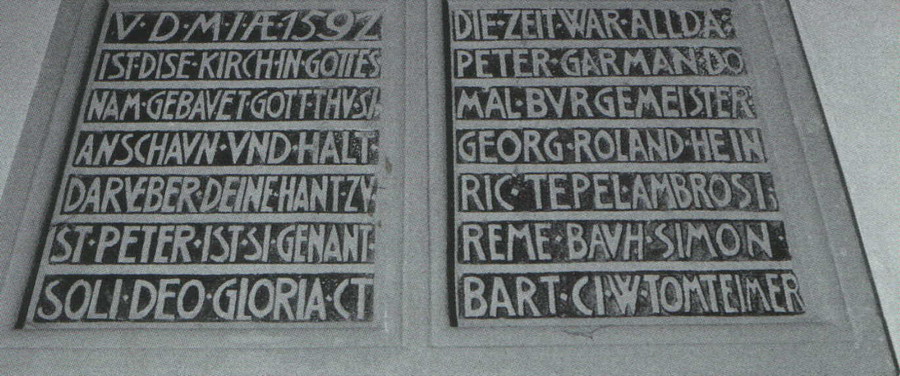 V·D·M·I·Æ·1592
IST·DISE·KIRCH·IN·GOTTES
NAM·GEBAVET·GOTT·THV·SI
ANSCHAVN·VND·HALT·
DARVEBER·DEINE·HANT·ZV·
ST·PETER·IST·SI·GENANT·
SOLI·DEO·GLORIA·CT
DIE·ZEIT·WAR·ALLDA·
PETER·GARMAN·DO
MAL·BVRGEMEISTER·
GEORG·ROLAND·HEIN
RIC·TEPEL·AMBROSI·
REME·BAVH·SIMON·
BART·CI·W·TOMTEIMER